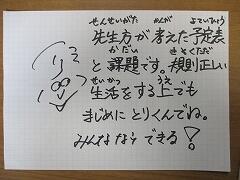 せんせいがた かんが よていひょう
先生方が考えた予定表
かだい きそくただ
と課題です。規則正しい
せいかつ うえ
生活をする上でも
まじめにとりくんでね。
みんなならできる!